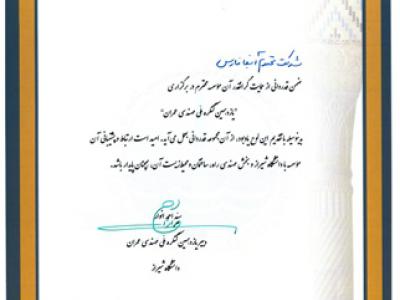 شرکت محترم آبفا فارس
ضمن قدردانی از حمایت گرانقدر آن موسسه محترم در برگزاری
"یازدهمین کنگره ملی مهندسی عمران"
بدینوسیله با تقدیم این لوح یادبود، از آن مجموعه قدردانی بعمل می‌آید. امید است ارتباط و پشتیبانی آن
موسسه با دانشگاه شیراز و بخش مهندسی راه، ساختمان و محیط زیست آن، همچنان پایدار باشد.
دبیر یازدهمین کنگره ملی مهندسی عمران
دانشگاه شیراز